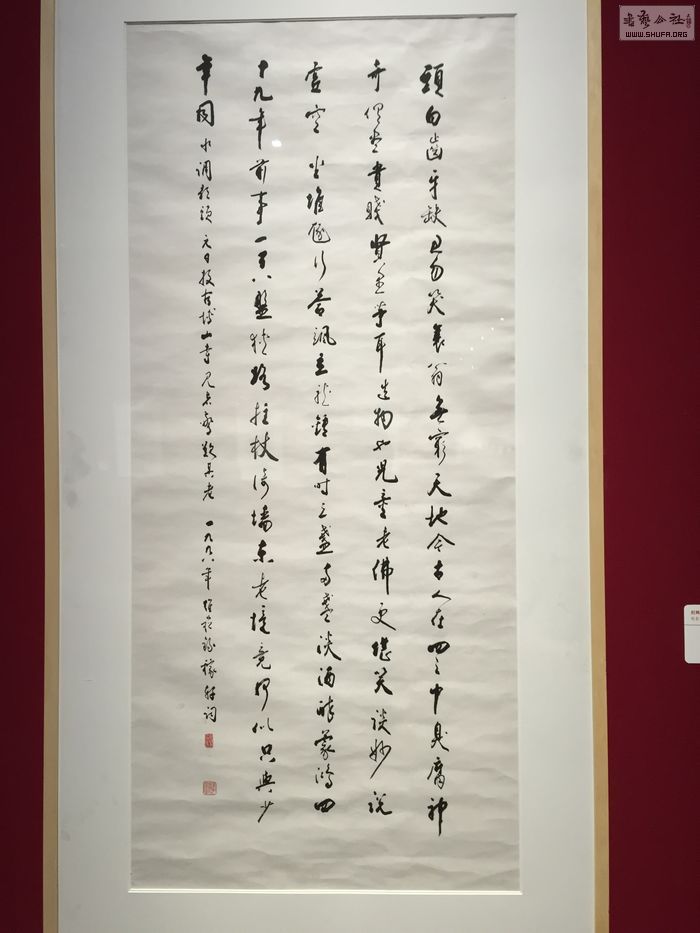 頭白齒牙缺君勿笑衰翁無窮天地今古人在四之中臭腐神
奇俱盡貴賤賢愚等耳造物也兒童老佛更堪笑談妙說
虛空坐堆豗行答颯立龍鍾有時三盞兩盞淡酒醉蒙鴻四
十九年前事一百八盤狹路拄杖倚墻東老境竟何似只與少
年同 水調歌頭 元日投宿博山寺見者驚歎其老 一九九八年 錄稼軒詞
書藝公社
WWW.SHUFA.ORG